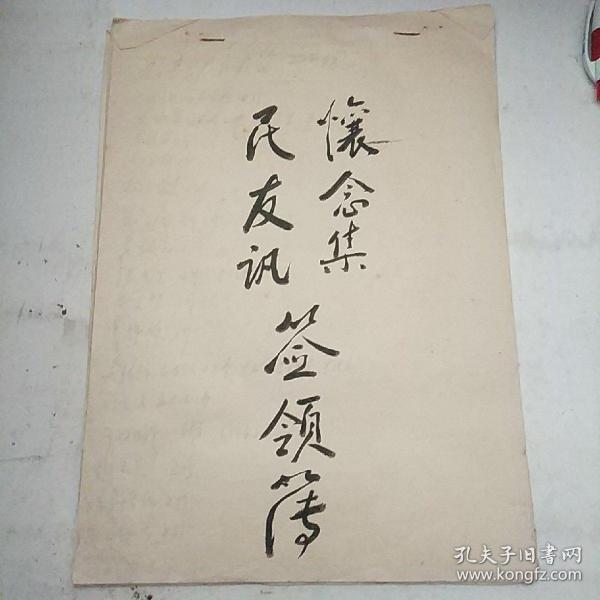 懷念集
民友讯
签领簿
孔夫子旧書网
www.kongfz.com